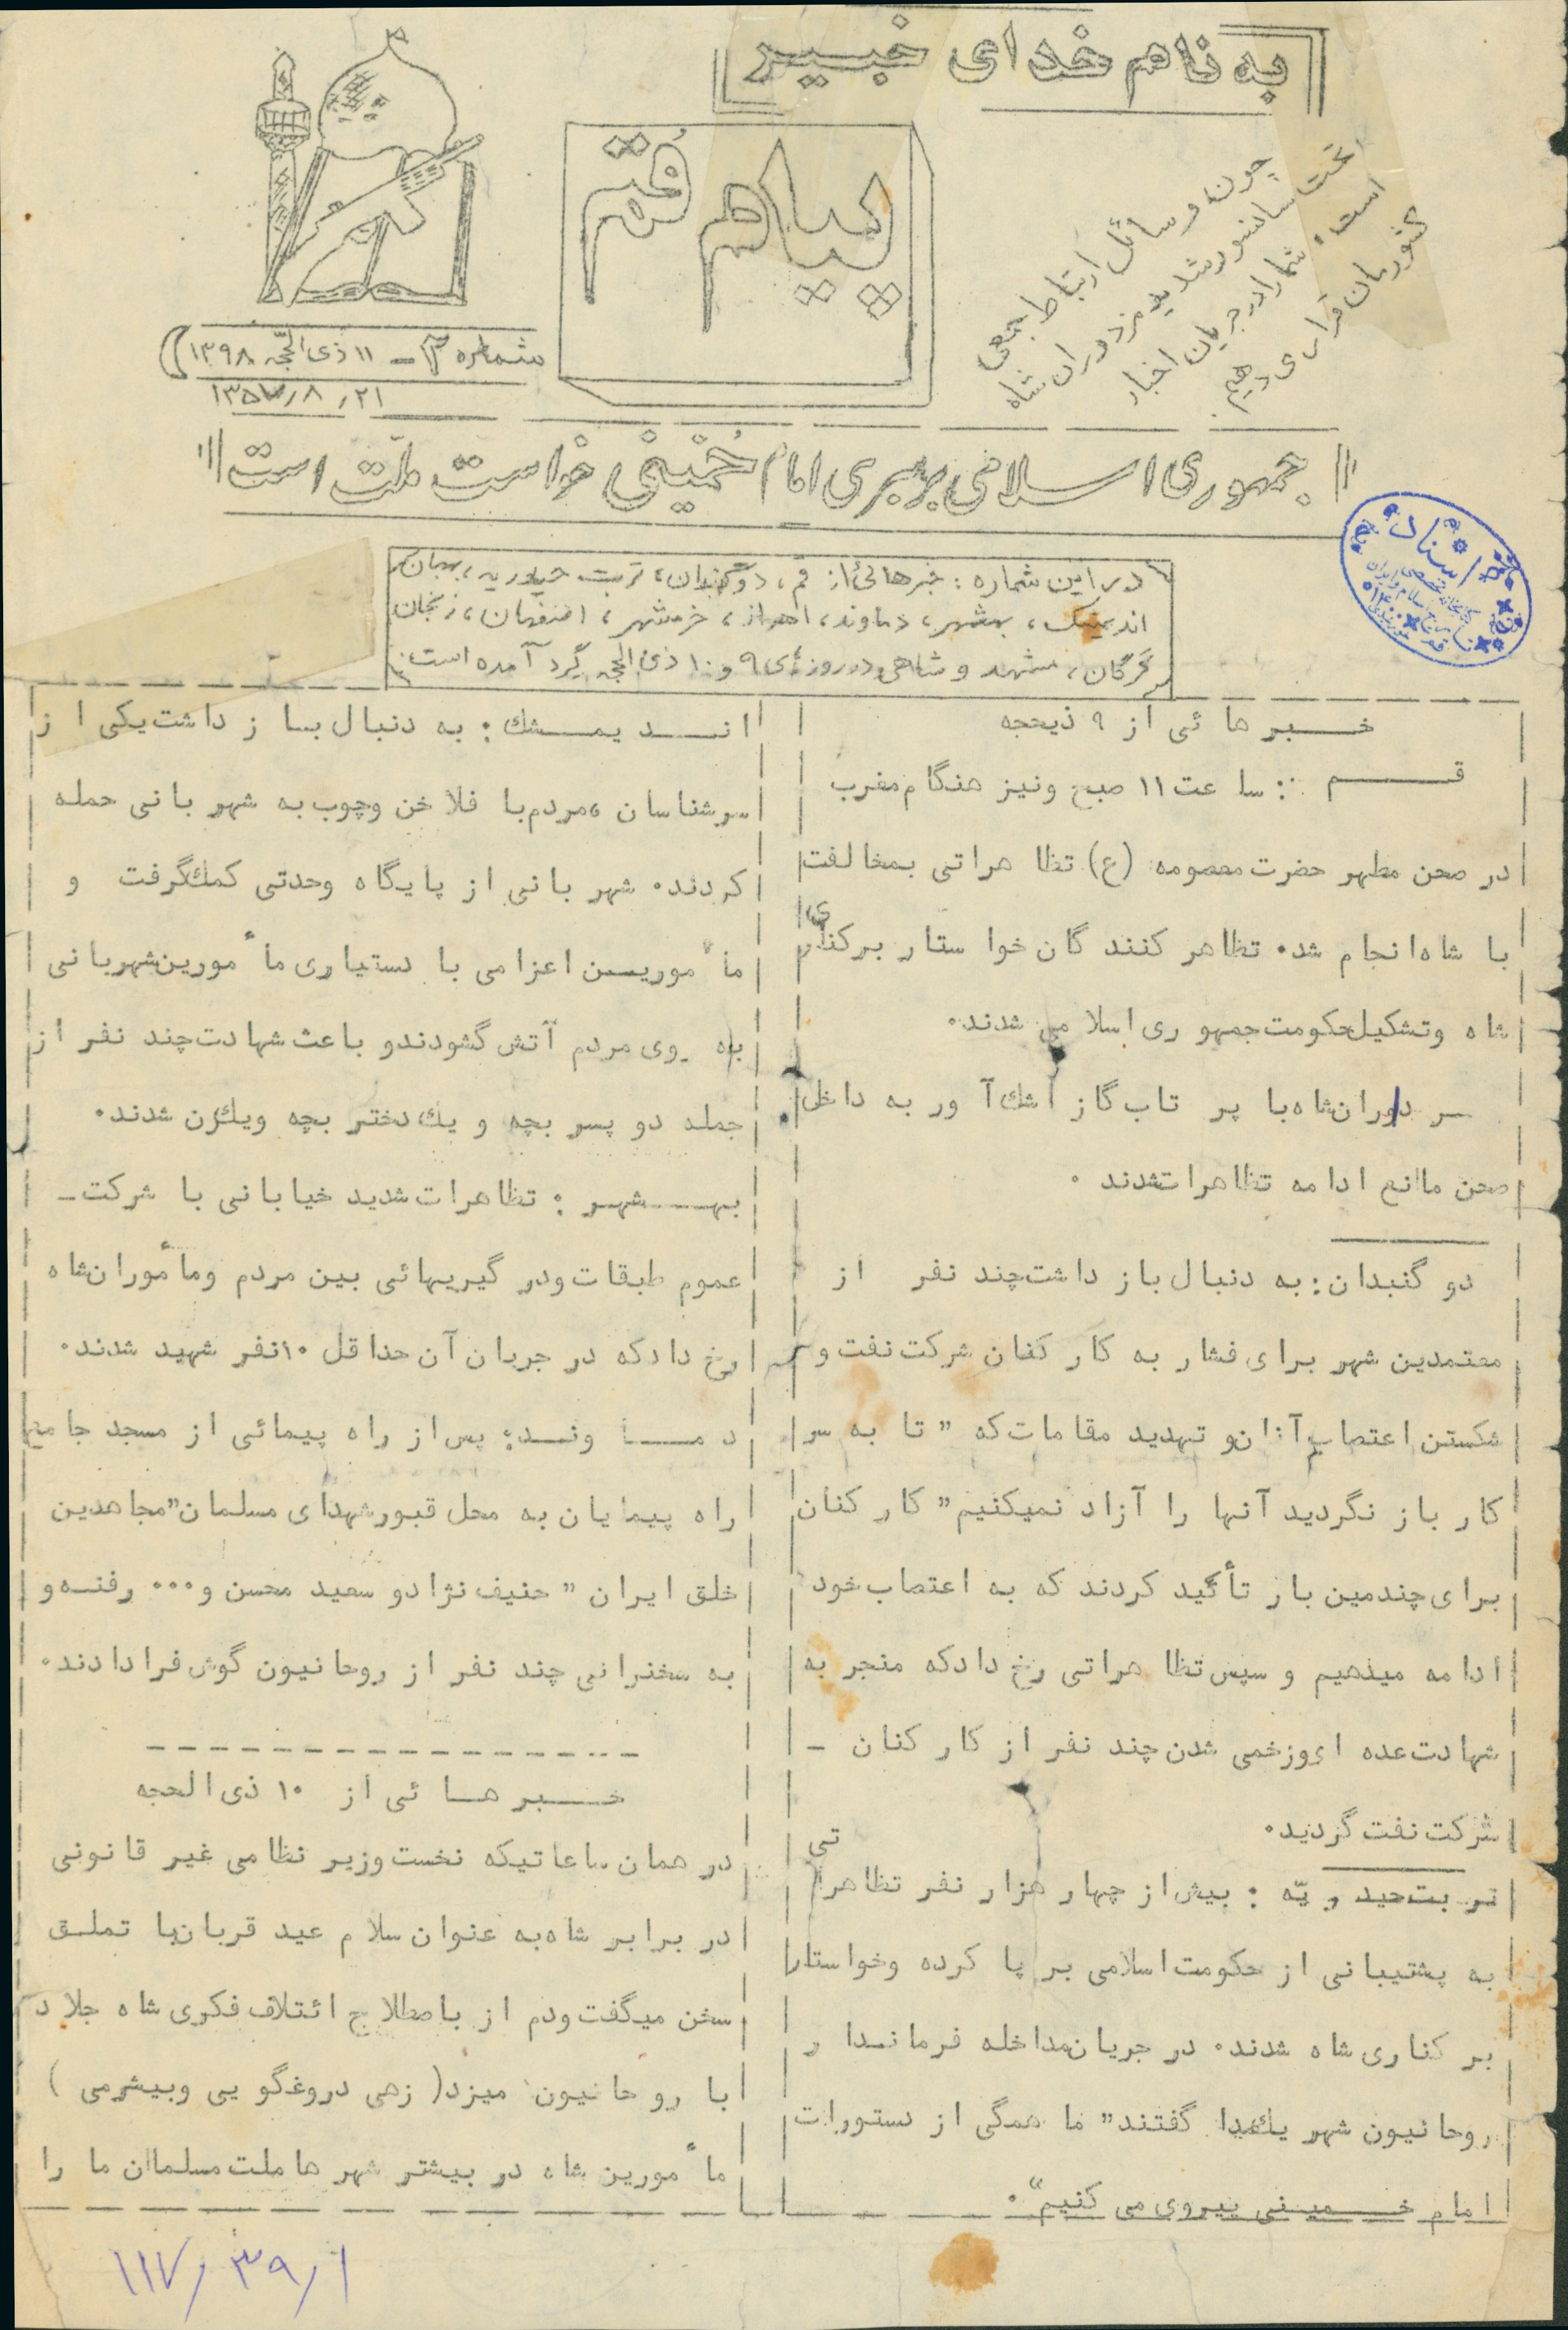 به نام خدای خبیر
پیام قم
چون وسائل ارتباط جمعی
تحت سانسور شدید مزدوران شاه
است، شما را در جریان اخبار
کشورمان قرار می دهیم.
شماره ۳ - ۱۱ ذی الحجّه ۱۳۹۸
۱۳۵۷/۸/۲۱
"جمهوری اسلامی برهبری امام خُمینی خواست ملّت است"
در این شماره: خبرهائی از قم، دوگنبدان، تربت حیدریه، بهبهان،
اندیمشک، بهشهر، دماوند، اهواز، خرمشهر، اصفهان، زنجان
گرگان، مشهد و شاهی در روزهای ۹ و ۱۰ ذی الحجه گرد آمده است.
خبرها ئی از ۹ ذیحجه
قم : سا عت ۱۱ صبح ونیز هنگام مغرب
در صحن مطهر حضرت معصومه (ع) تظا هراتی بمخا لفت
با شاه انجام شد. تظاهر کنند گان خوا ستار برکناری
شاه وتشکیل حکومت جمهو ری اسلا می شدند.
سر داوران شاه با پر تاب گاز اشك آ ور به داخل
صحن مانع ادا مه تظا هرات شدند .
دو گنبدان: به دنبال باز داشت چند نفر از
معتمدین شهر برای فشار به کار کنان شرکت نفت و
شکستن اعتصاب آنان و تهدید مقامات که " تا به سر
کار باز نگردید آنها را آزاد نمیکنیم" کار کنان
برای چندمین بار تأکید کردند که به اعتصاب خود
ادا مه میدهیم و سپس تظا هراتی رخ داد که منجر به
شهادت عده ای وزخمی شدن چند نفر از کار کنان -
شرکت نفت گردید.
تر بت حید ر یّه : بیش از چهار هزار نفر تظاهراتی
به پشتیبانی از حکومت اسلامی بر پا کرده وخواستار
بر کناری شاه شدند. در جریان مداخله فرماندا ر
روحانیون شهر یك صدا گفتند" ما همگی از دستورات
امام خمینی پیروی می کنیم".
اندیمشك : به دنبال باز داشت یکی از
سرشناسان ،مردم با فلا خن وچوب به شهر بانی حمله
کردند. شهر بانی از پایگاه وحدتی کمك گرفت و
مأ مورین اعزامی با دستیاری مأ مورین شهربانی
به روی مردم آتش گشودندو باعث شهادت چند نفر از
جمله دو پسر بچه و یك دختر بچه ویك زن شدند.
بهشهر : تظاهرات شدید خیابانی با شرکت -
عموم طبقات ودر گیریهائی بین مردم ومأموران شاه
رخ دادکه در جریان آن حداقل ۱۰نفر شهید شدند.
د ما وند: پس از راه پیمائی از مسجد جامع
راه پیما یان به محل قبور شهدای مسلمان"مجاهدین
خلق ایران " حنیف نژادو سعید محسن و... رفته و
به سخنرانی چند نفر از روحانیون گوش فرا دادند.
خبر ها ئی از ۱۰ ذی الحجه
در همان ساعاتیکه نخست وزیر نظامی غیر قانونی
در برابر شاه به عنوان سلام عید قربان با تملق
سخن میگفت ودم از باصطلاح ائتلاف فکری شاه جلاد
با رو حانیون میزد( زهی دروغگو یی وبیشرمی )
مأ مورین شاه در بیشتر شهر ها ملت مسلمان ما را
۱۱۷/۳۹/۱